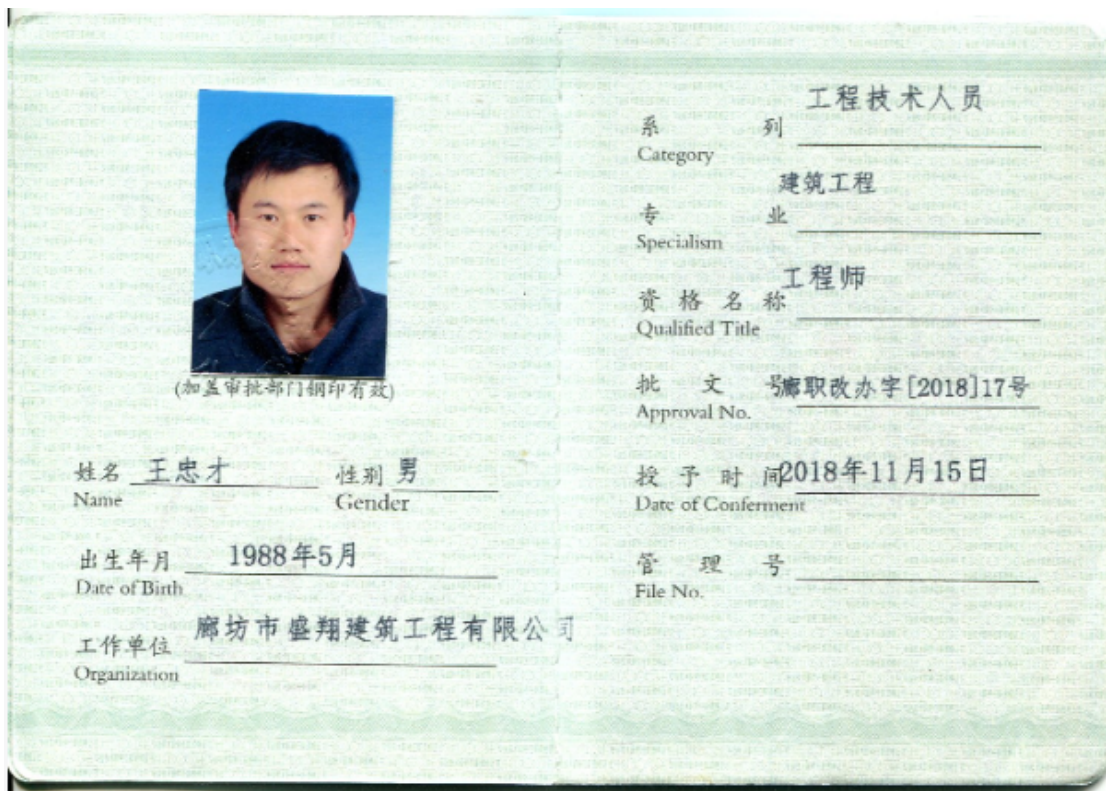 (加盖审批部门钢印有效)
姓名 王忠才 性别 男
Name Gender
出生年月 1988年5月
Date of Birth
廊坊市盛翔建筑工程有限公司
工作单位
Organization
工程技术人员
系 列
Category
建筑工程
专 业
Specialism
工程师
资格名称
Qualified Title
批 文 号 廊职改办字[2018]17号
Approval No.
授予时间 2018年11月15日
Date of Conferment
管 理 号
File No.